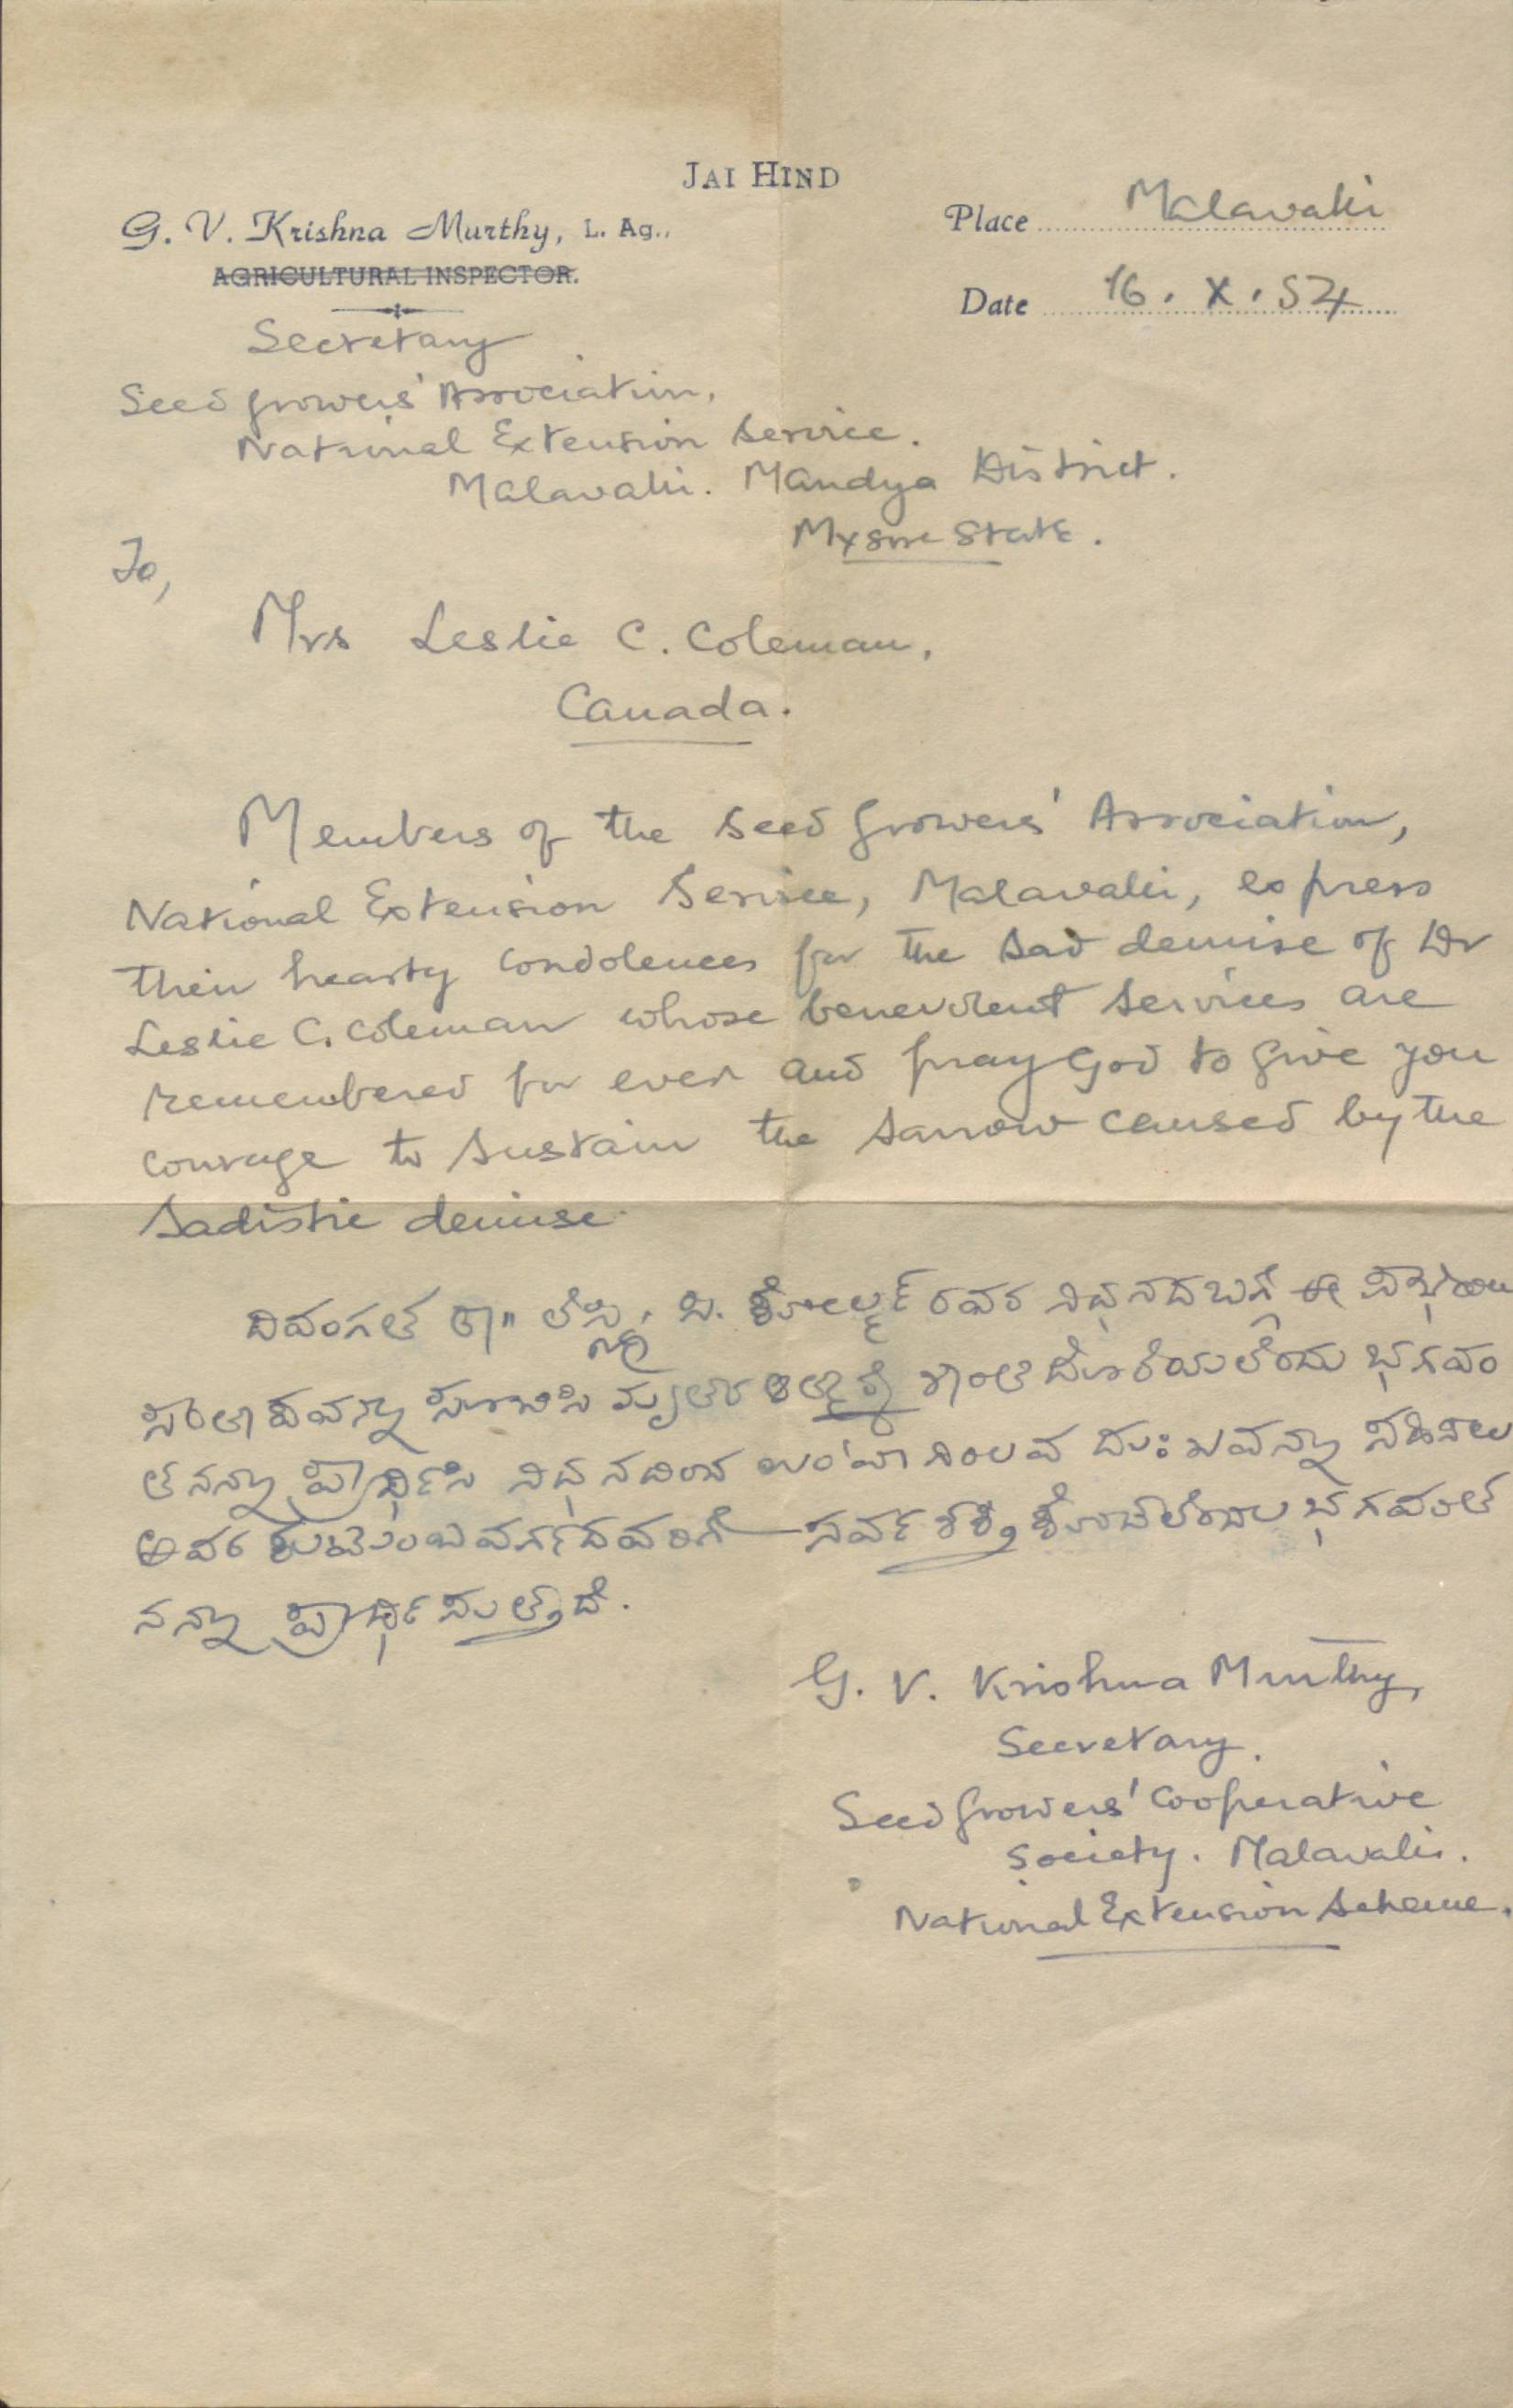 JAI HIND
G. V. Krishna Murthy, L. Ag.,
AGRICULTURAL INSPECTOR.
Place Malavalli
Date 16. X. 54
Secretary
Seed growers' Association,
National Extension Service.
Malavalli. Mandya District.
Mysore State.
To,
Mrs Leslie C. Coleman,
Canada.
Members of the Seed growers' Association,
National Extension Service, Malavalli, express
their hearty condolences for the sad demise of Dr
Leslie C. Coleman whose benevolent services are
remembered for ever and pray God to give you
courage to sustain the sarrow caused by the
Sadistic demise.
ದಿವಂಗತ ಡಾ॥ ಲೆಸ್ಲಿ. ಸಿ. ಕೋಲ್ಮನ್ ರವರ ನಿಧನದ ಬಗ್ಗೆ ಈ
ಸಂತಾಪವನ್ನು ಸೂಚಿಸಿ ಮೃತರ ಆತ್ಮಕ್ಕೆ ಶಾಂತಿ ದೊರೆಯಲೆಂದು ಭಗವಂ
ತನನ್ನು ಪ್ರಾರ್ಥಿಸಿ ನಿಧನದಿಂದ ಉಂಟಾಗಿರುವ ದುಃಖವನ್ನು ಸಹಿಸಲು
ಅವರ ಕುಟುಂಬವರ್ಗದವರಿಗೆ ಸರ್ವ ಶಕ್ತಿ ಕೊಡಲೆಂದು ಭಗವಂತ
ನನ್ನು ಪ್ರಾರ್ಥಿಸುತ್ತದೆ.
G. V. Krishna Murthy,
Secretary.
Seed growers' Cooperative
Society. Malavalli.
National Extension Scheme.